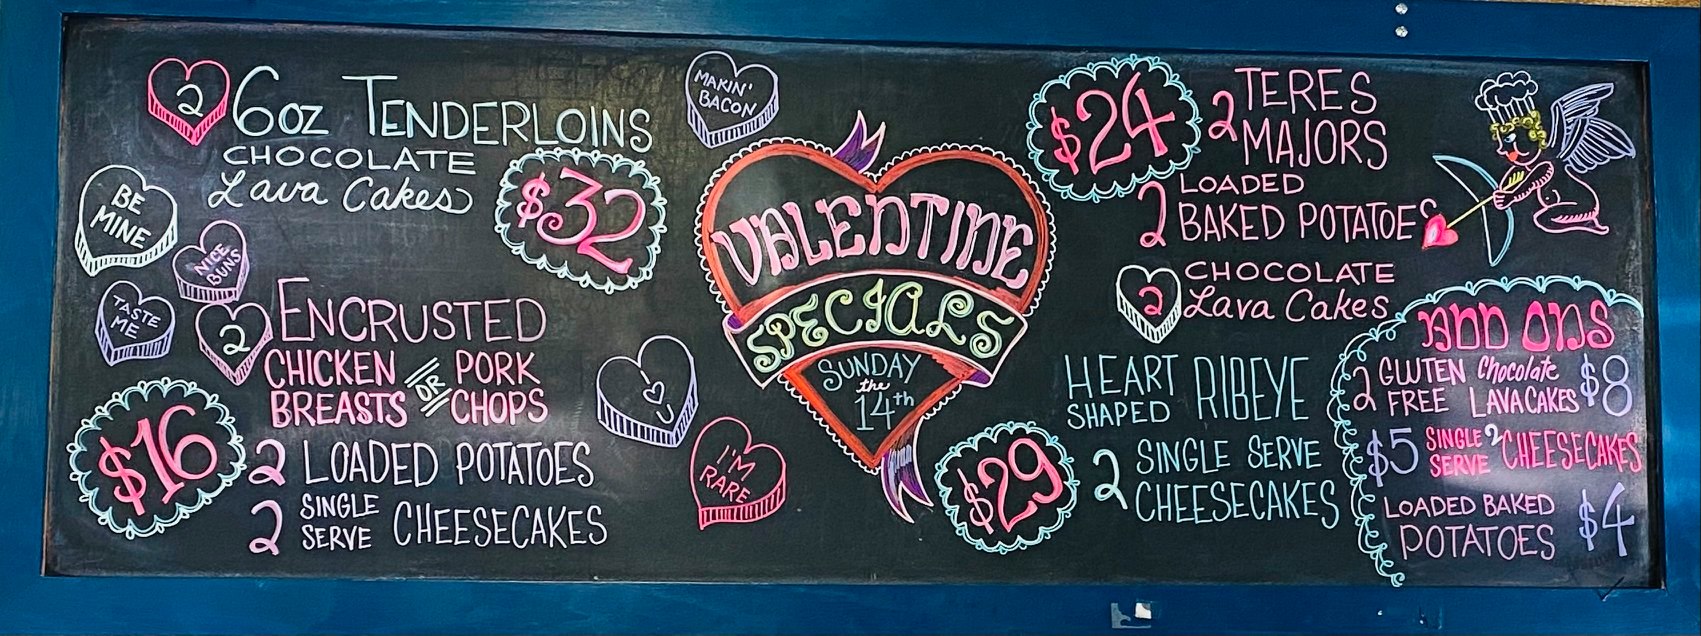 2 6oz TENDERLOINS
CHOCOLATE
Lava Cakes
$32
BE
MINE
NICE
BUNS
TASTE
ME
2 ENCRUSTED
CHICKEN OR PORK
BREASTS CHOPS
$16
2 LOADED POTATOES
2 SINGLE SERVE CHEESECAKES
MAKIN'
BACON
VALENTINE
SPECIALS
SUNDAY
the
14th
I U
I'M
RARE
$24
2 TERES
MAJORS
2 LOADED
BAKED POTATOES
2 CHOCOLATE
Lava Cakes
HEART SHAPED RIBEYE
$29
2 SINGLE SERVE
CHEESECAKES
ADD ONS
2 GLUTEN FREE Chocolate LAVA CAKES $8
$5 SINGLE SERVE 2 CHEESECAKES
LOADED BAKED
POTATOES $4